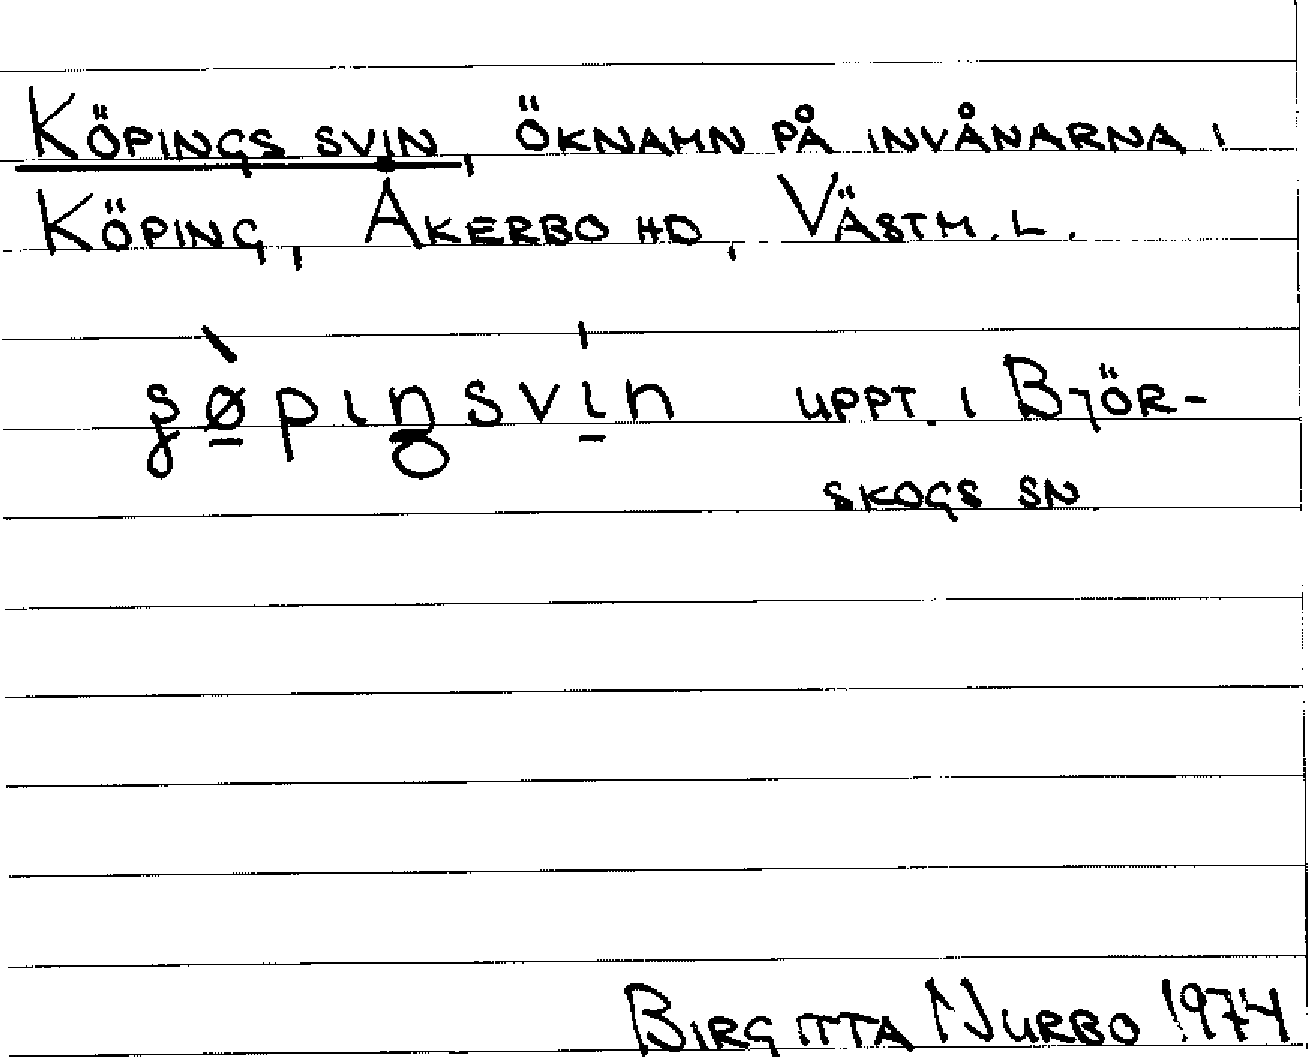 KÖPINGS SVIN, ÖKNAMN PÅ INVÅNARNA I
KÖPING, ÅKERBO HD, VÄSTM. L.
UPPT. I BJÖR-
SKOGS SN
BIRGITTA NURBO 1974